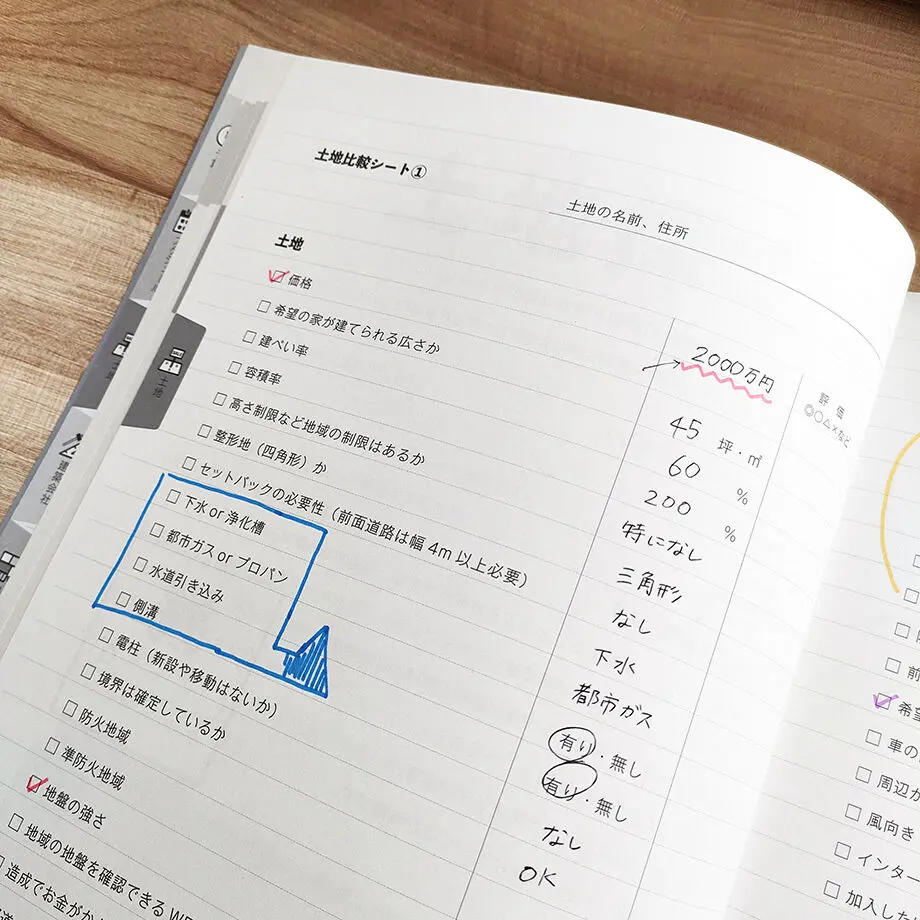 土地比較シート①
土地の名前、住所
土地
評価
◎○△×など
価格
2000万円
希望の家が建てられる広さか
45 坪・㎡
建ぺい率
60 %
容積率
200 %
高さ制限など地域の制限はあるか
特になし
整形地（四角形）か
三角形
セットバックの必要性（前面道路は幅4m以上必要）
なし
下水or浄化槽
下水
都市ガスorプロパン
都市ガス
水道引き込み
有り・無し
側溝
有り・無し
電柱（新設や移動はないか）
なし
境界は確定しているか
OK
防火地域
準防火地域
地盤の強さ
地域の地盤を確認できるWE
造成でお金がか
土地
建築会社
希望
車の
周辺が
風向き
インター
加入した